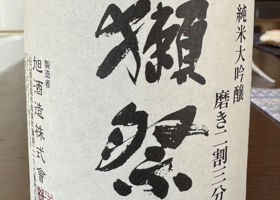 純米大吟醸
磨き二割三分
獺祭
製造者
旭酒造株式會